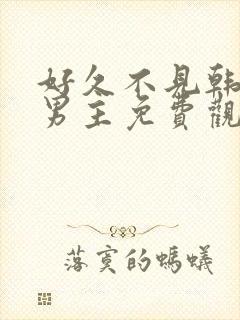 好久不見韩
男主免費觀
落寞的螞蟻